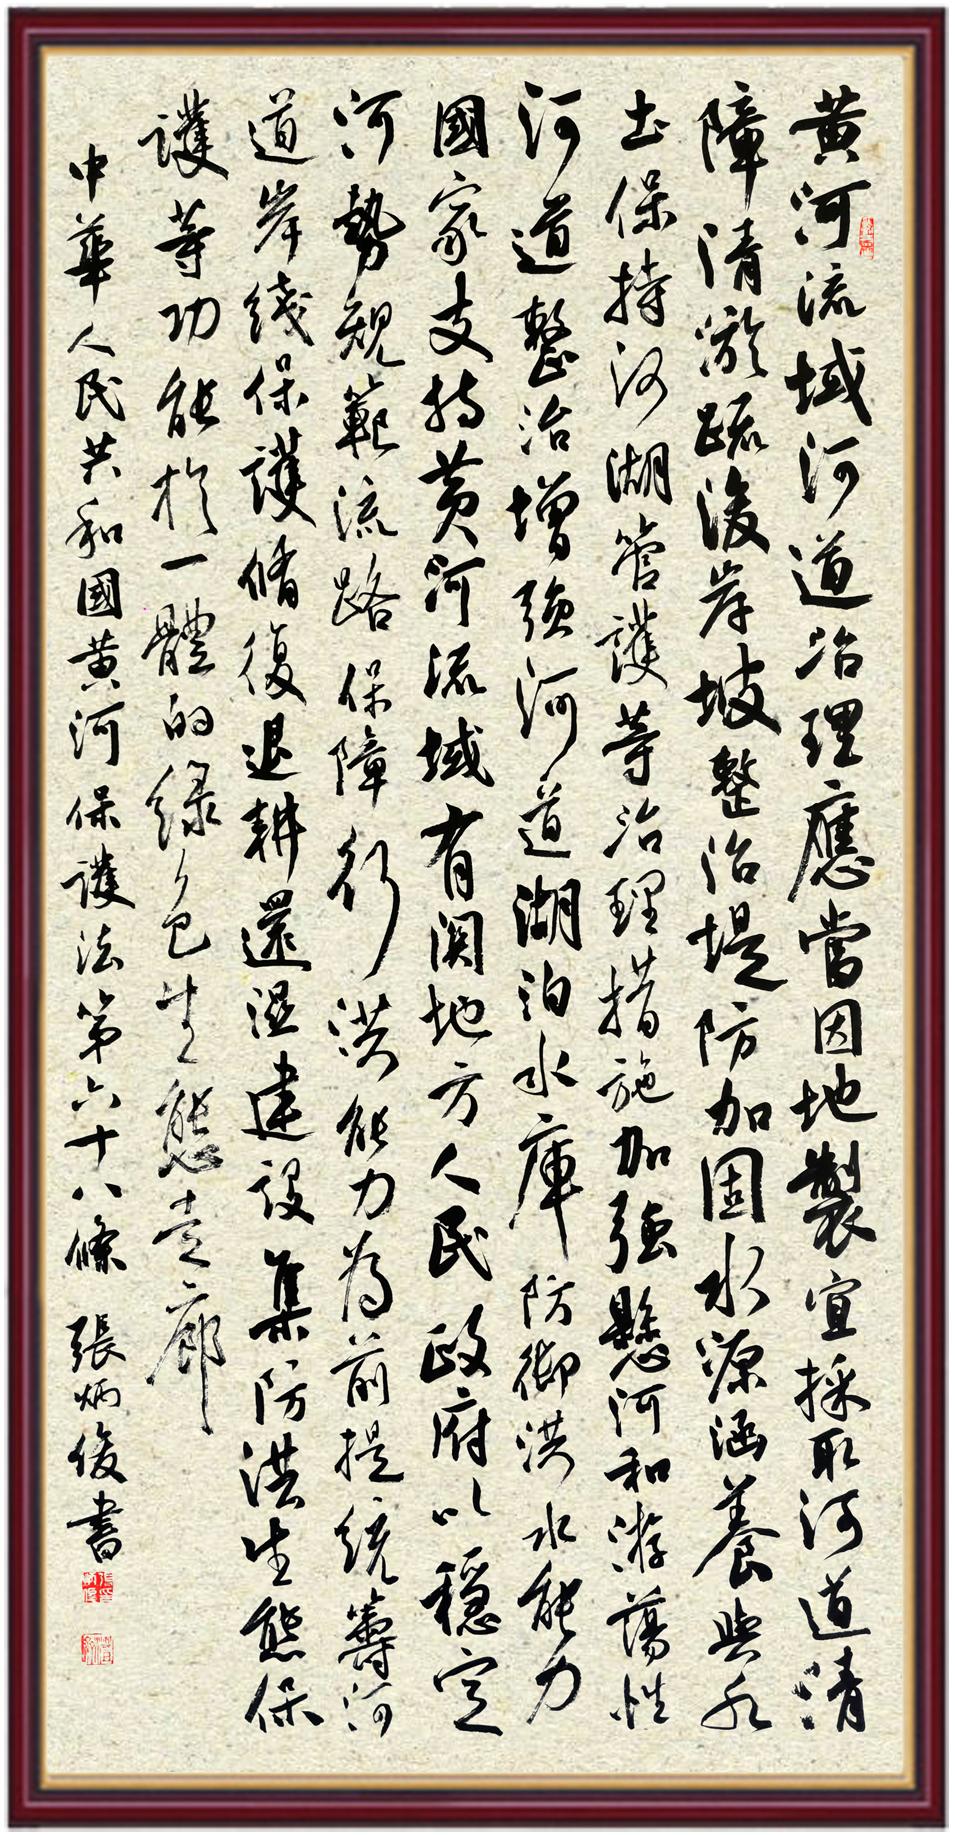 黄河流域河道治理應當因地製宜採取河道清
障清淤疏浚岸坡整治堤防加固水源涵養與水
土保持河湖管護等治理措施加强懸河和游蕩性
河道整治增强河道湖泊水庫防御洪水能力
國家支持黄河流域有関地方人民政府以穩定
河勢規範流路保障行洪能力為前提統籌河
道岸綫保護脩復退耕還濕建設集防洪生態保
護等功能於一體的緑色生態走廊
中華人民共和國黄河保護法第六十八條 張炳俊書